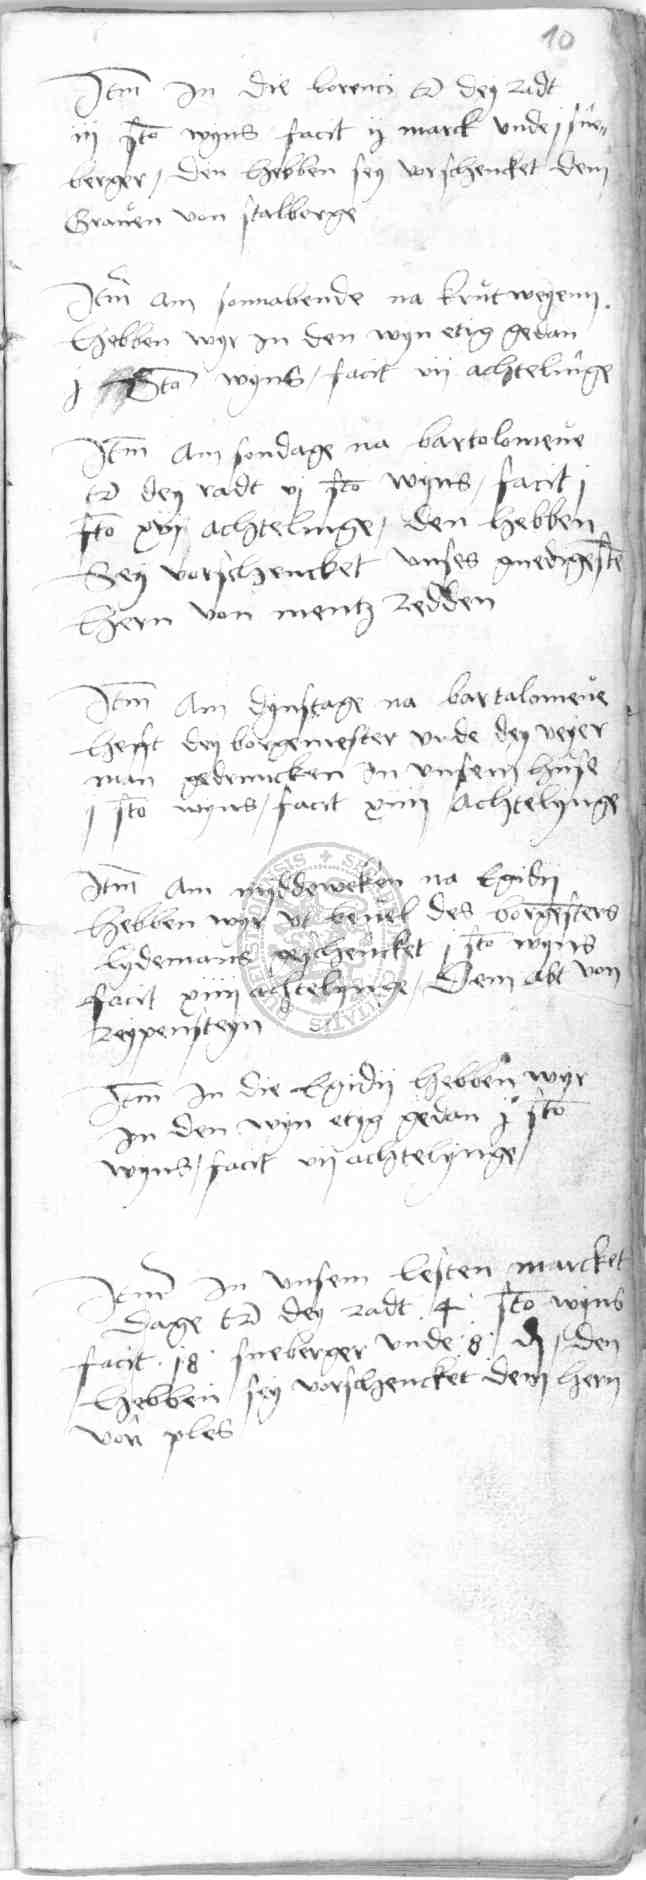 10
Itm in die lorenci dey radt
iij sto wyns facit ij marck unde j sne=
berger, den hebben sey vorschencket dem
Graven von stalberge
Itm am sonnabende na krutweyenn.
hebben wyr in den wyn etig gedan
j Sto wyns, facit vij achtelinge
Itm Am sondage na bartolomeue
dey radt vj sto wyns, facit j
sto xvj achtelinge, den hebben
Sey vorschencket unses gnedigeste
hern von mentz Redden
Itm Am dynstage na bartalomeue
hefft dey borgemester unde dey veyer
man gedruncken in unsem huse
j sto wyns, facit xiiij achtelynge
Itm Am myddeweken na Egidii
hebben wyr ut bevel des borgesters
lydemans j sto wyns
facit xiiij achtelynge, Dem Abt von
Reypensteyn
Itm in die Egidij hebben wyr
in den wyn etyg gedan j sto
wyns, facit vij achtelynge
Itm in unsem lesten marcket
Dage dey radt .4. sto wyns
facit .18. sneberger unde .8. den
hebben sey vorschencket dem hern
von ples